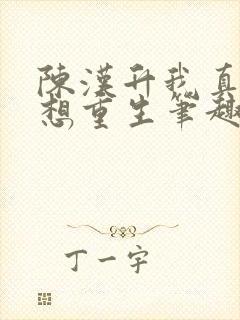 陳漢升我真
想重生筆趣
丁一宇